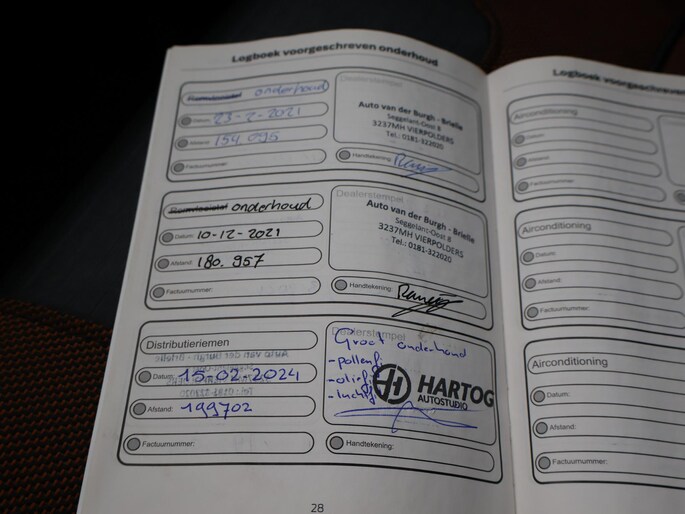 Logboek voorgeschreven onderhoud
Remvloeistof onderhoud
Datum: 23-2-2021
Afstand: 154 095
Factuurnummer:
Dealerstempel
Auto van der Burgh - Brielle
Seggelant-Oost 8
3237MH VIERPOLDERS
Tel.: 0181-322020
Handtekening:
Remvloeistof onderhoud
Datum: 10-12-2021
Afstand: 180.957
Factuurnummer:
Dealerstempel
Auto van der Burgh - Brielle
Seggelant-Oost 8
3237MH VIERPOLDERS
Tel.: 0181-322020
Handtekening:
Distributieriemen
Datum: 15-02-2024
Afstand: 199702
Factuurnummer:
Dealerstempel
Groot onderhoud
-pollenfi
-oliefi
-luchtfi
HARTOG
AUTOSTUDIO
Handtekening:
28
Logboek voorgeschreven
Airconditioning
Datum:
Afstand:
Factuurnummer:
Airconditioning
Datum:
Afstand:
Factuurnummer:
Airconditioning
Datum:
Afstand:
Factuurnummer: